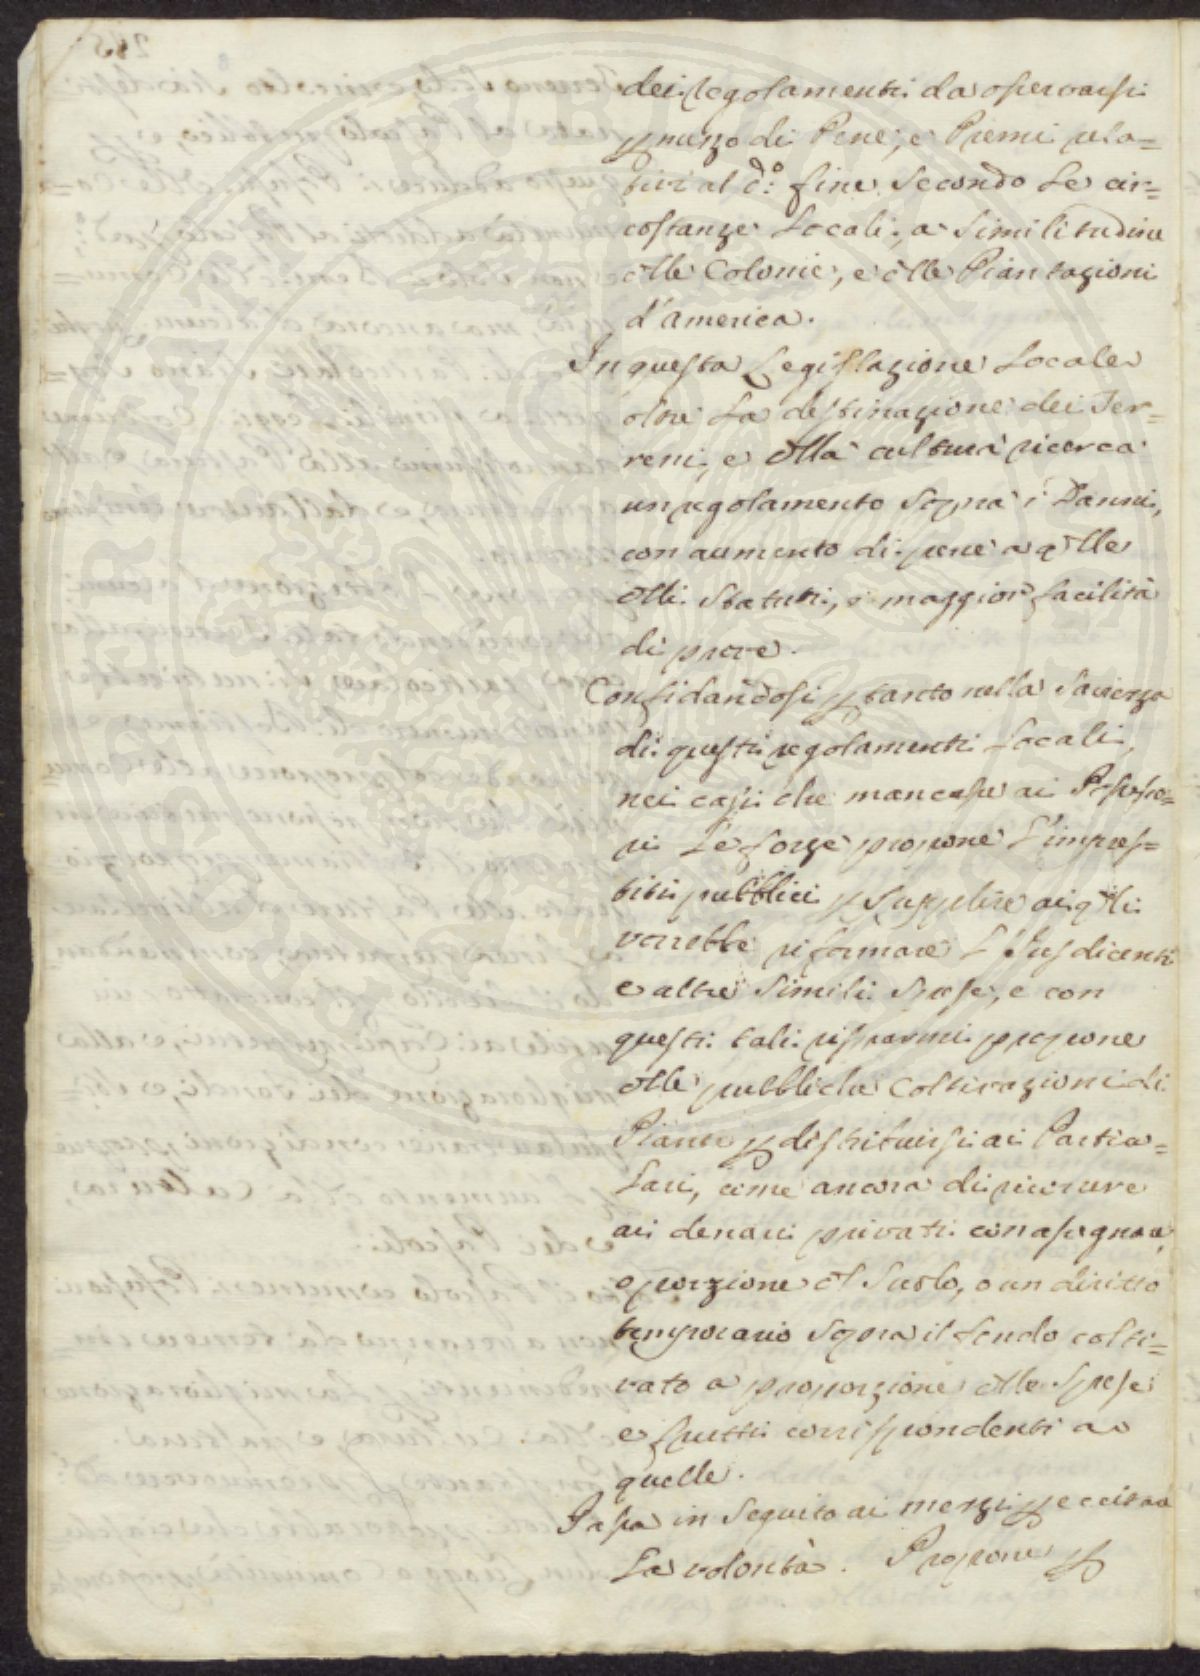 dei regolamenti da osservarsi
p mezzo di Pene, e Premi rela=
tivi al do: fine secondo le cir=
costanze Locali, a similitudine
dlle Colonie, e dlle Piantazioni
d'america.
In questa Legislazione Locale
oltre la destinazione dei Ter=
reni, e dlla cultura ricerca
un regolamento sopra i Danni,
con aumento di pene a qlle
dlli Statuti, e maggior facilità
di prove.
Confidandosi p tanto nella Saviezza
di questi regolamenti Locali,
nei casi che mancasse ai Possesso=
ri Le forze propone L'impres=
titi pubblici p supplire ai qli
vorrebbe riformare L'Jusdicenti
e altre simili Spese, e con
questi tali risparmi propone
dlle pubbliche Coltivazioni di
Piante p distribuirsi ai Partico=
lari, come ancora di ricorrere
ai denari privati con assegnare
o porzione dl Suolo, o un diritto
temporario sopra il fondo colti=
vato a proporzione dlle Spese
e frutti corrispondenti a
quelle.
Passa in seguito ai mezzi p eccitare
La volontà. Propone p